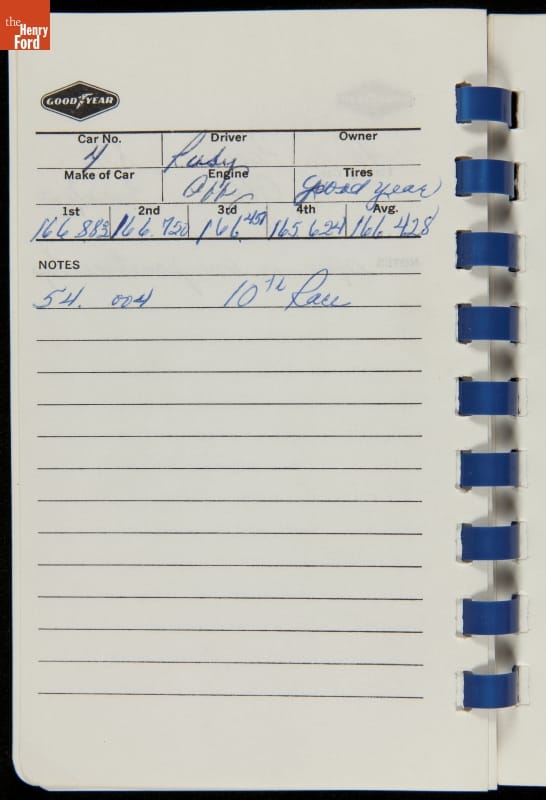 the
Henry
Ford
GOOD YEAR
Car No. Driver Owner
4 Ruby
Make of Car Engine Tires
Off Good year
1st 2nd 3rd 4th Avg.
166.883 166.720 166.451 165.624 166.428
NOTES
54. 004 10th Race